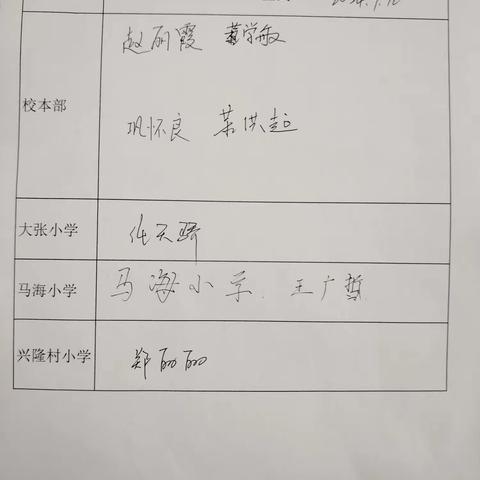 2024.9.12
校本部
赵丽霞 学敏
巩怀良 荣洪起
大张小学
任天骄
马海小学
马海小学 王广哲
兴隆村小学
郑丽丽